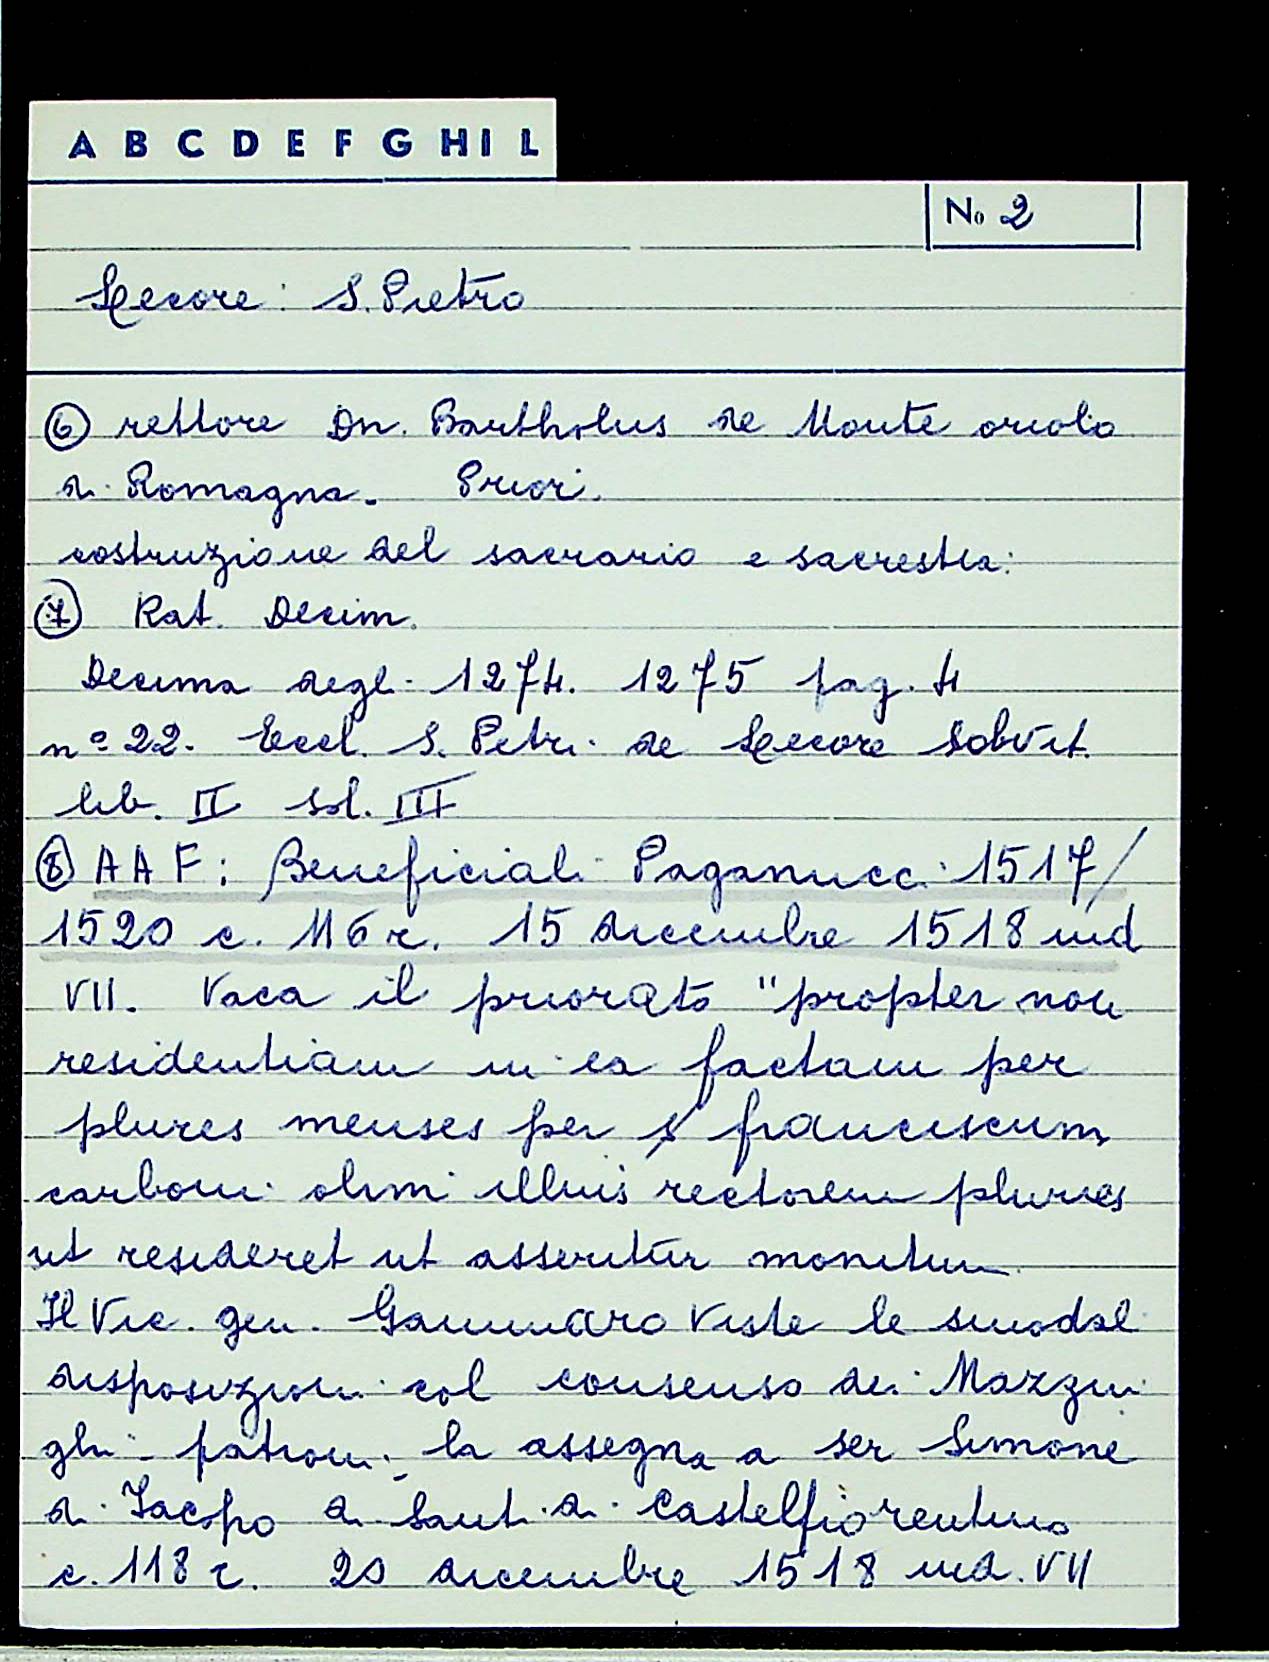 A B C D E F G H I L
No 2
Lecore: S. Pietro
⑥ rettore Dn. Bartholus de Monte oriolo
di Romagna. Priori.
costruzione del sacrario e sacrestia:
⑦ Rat. Decim.
Decima degli 1274. 1275 pag. 4
nº 22. Eccl. S. Petri de Lecore solvit
lib. II sol. III
⑧ AAF: Beneficiali Paganucci 1517/
1520 c. 116 r. 15 dicembre 1518 ind
VII. Vaca il priorato "propter non
residentiam in ea factam per
plures menses per s franciscum
carboni olim illius rectorem pluries
ut resideret ut asseritur monitum
Il Vic. gen. Gammaro viste le sinodali
disposizioni col consenso dei Mazzin
ghi patroni la assegna a ser Simone
di Jacopo di Santi di Castelfiorentino
c. 118 r. 20 dicembre 1518 ind. VII